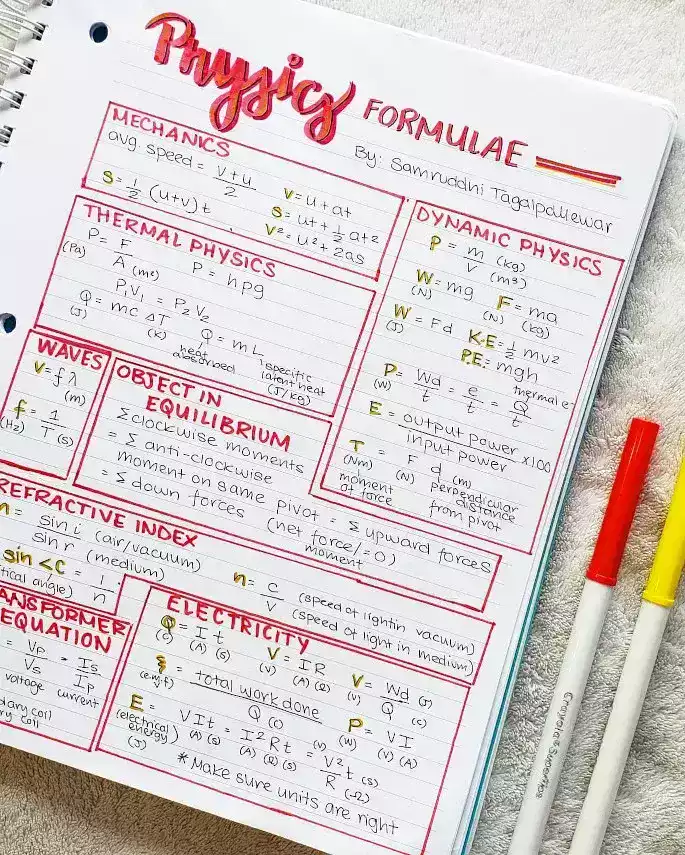 Physics FORMULAE
By: Samruddhi Tagalpallewar
MECHANICS
avg. speed = v+u / 2
s = 1/2 (u+v) t
v = u + at
s = ut + 1/2 at2
v² = u² + 2as
THERMAL PHYSICS
P = F / A (m²)
(Pa)
P = hρg
P₁V₁ = P₂V₂
Q = mc ΔT
(J) (K)
Q = mL
heat absorbed
specific latent heat (J/kg)
DYNAMIC PHYSICS
P = m (kg) / V (m³)
W = mg
(N)
F = ma
(N) (kg)
W = Fd
(J)
K.E = 1/2 mv2
P.E = mgh
P = Wd / t = e / t = Q / t
(W)
thermal e
E = output power / input power x100
T = F d (m)
(Nm) (N) perpendicular
moment distance
of force from pivot
WAVES
v = fλ
(m)
f = 1 / T (s)
(Hz)
OBJECT IN
EQUILIBRIUM
Σclockwise moments
= Σ anti-clockwise
moment on same pivot = Σ upward forces
= Σ down forces (net force/=0)
moment
REFRACTIVE INDEX
n = sin i / sin r (air/vacuum) (medium)
sin <C = 1 / n
tical angle)
n = c / v (speed of light in vacuum)
(speed of light in medium)
ANSFORMER
EQUATION
= Vp / Vs = Is / Ip
voltage current
dary coil
ry coil
ELECTRICITY
Q = I t
(C) (A) (s)
V = I R
(V) (A) (Ω)
V = Wd (J) / Q (C)
(V)
ξ = total work done / Q (C)
(e.m.f)
P = V I
(W) (V) (A)
E = V I t = I² R t = V² / R t (s)
(electrical energy) (A) (s) (A) (Ω) (s) (V) (Ω)
(J)
*Make sure units are right